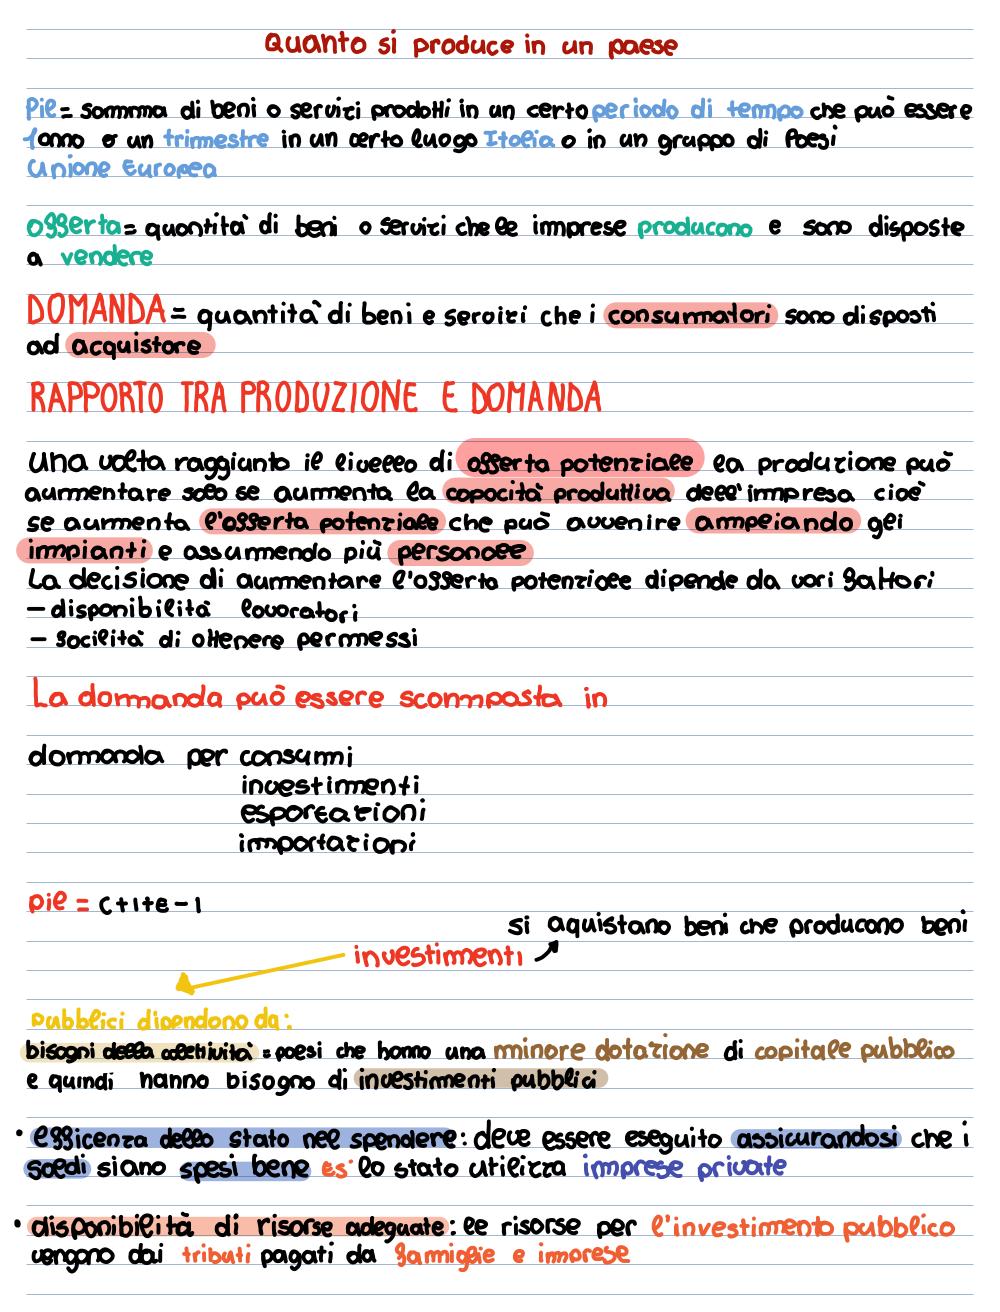 Quanto si produce in un paese
Pil = somma di beni o servizi prodotti in un certo periodo di tempo che può essere
1anno o un trimestre in un certo luogo Italia o in un gruppo di Paesi
Unione Europea
offerta = quantità di beni o servizi che le imprese producono e sono disposte
a vendere
DOMANDA = quantità di beni e servizi che i consumatori sono disposti
ad acquistare
RAPPORTO TRA PRODUZIONE E DOMANDA
Una volta raggiunto il livello di offerta potenziale la produzione può
aumentare solo se aumenta la capacità produttiva dell'impresa cioè
se aumenta l'offerta potenziale che può avvenire ampliando gli
impianti e assumendo più personale
La decisione di aumentare l'offerta potenziale dipende da vari fattori
- disponibilità lavoratori
- facilità di ottenere permessi
La domanda può essere scomposta in
domanda per consumi
investimenti
esportazioni
importazioni
pil = C+I+e-I
si aquistano beni che producono beni
investimenti
pubblici dipendono da:
bisogni della collettività = paesi che hanno una minore dotazione di capitale pubblico
e quindi hanno bisogno di investimenti pubblici
• efficenza dello stato nel spendere: deve essere eseguito assicurandosi che i
soldi siano spesi bene es: lo stato utilizza imprese private
• disponibilità di risorse adeguate: le risorse per l'investimento pubblico
vengono dai tributi pagati da famiglie e imprese